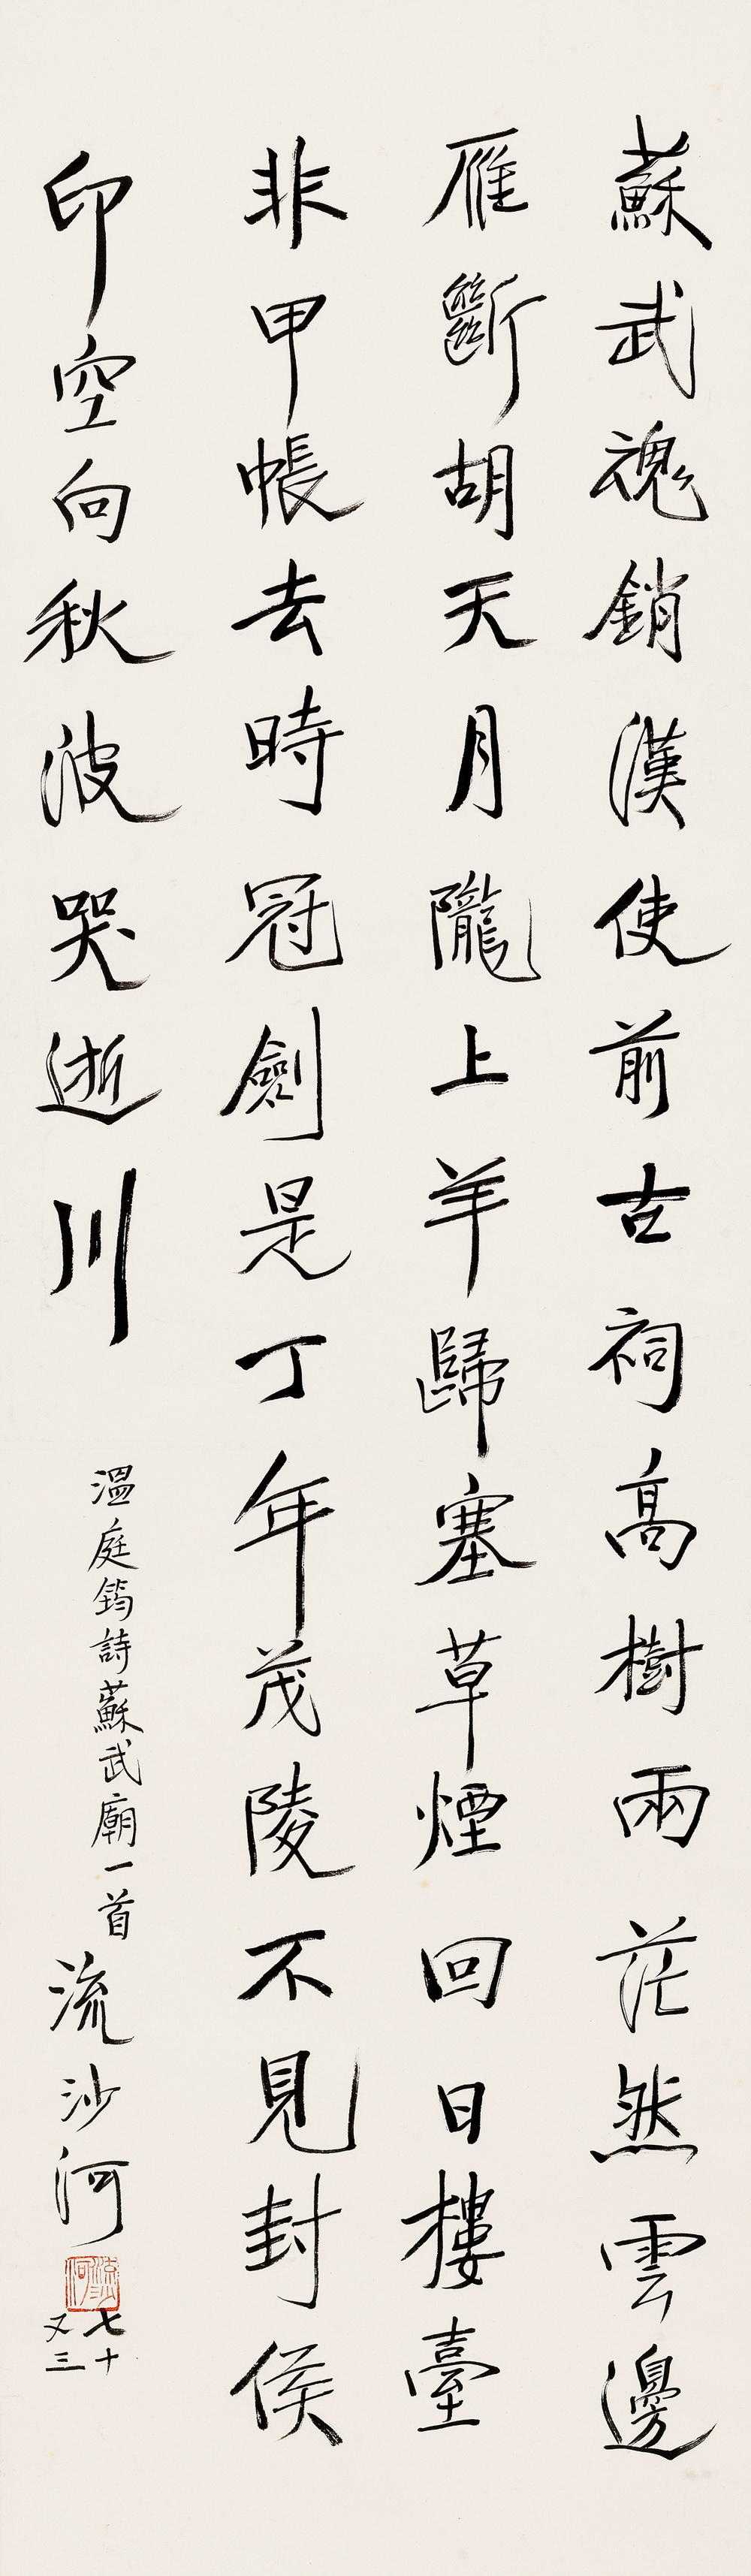 蘇武魂銷漢使前古祠高樹兩茫然雲邊
雁斷胡天月隴上羊歸塞草煙回日樓臺
非甲帳去時冠劍是丁年茂陵不見封侯
印空向秋波哭逝川
溫庭鈞詩蘇武廟一首
流沙河
流沙河
七十
又三